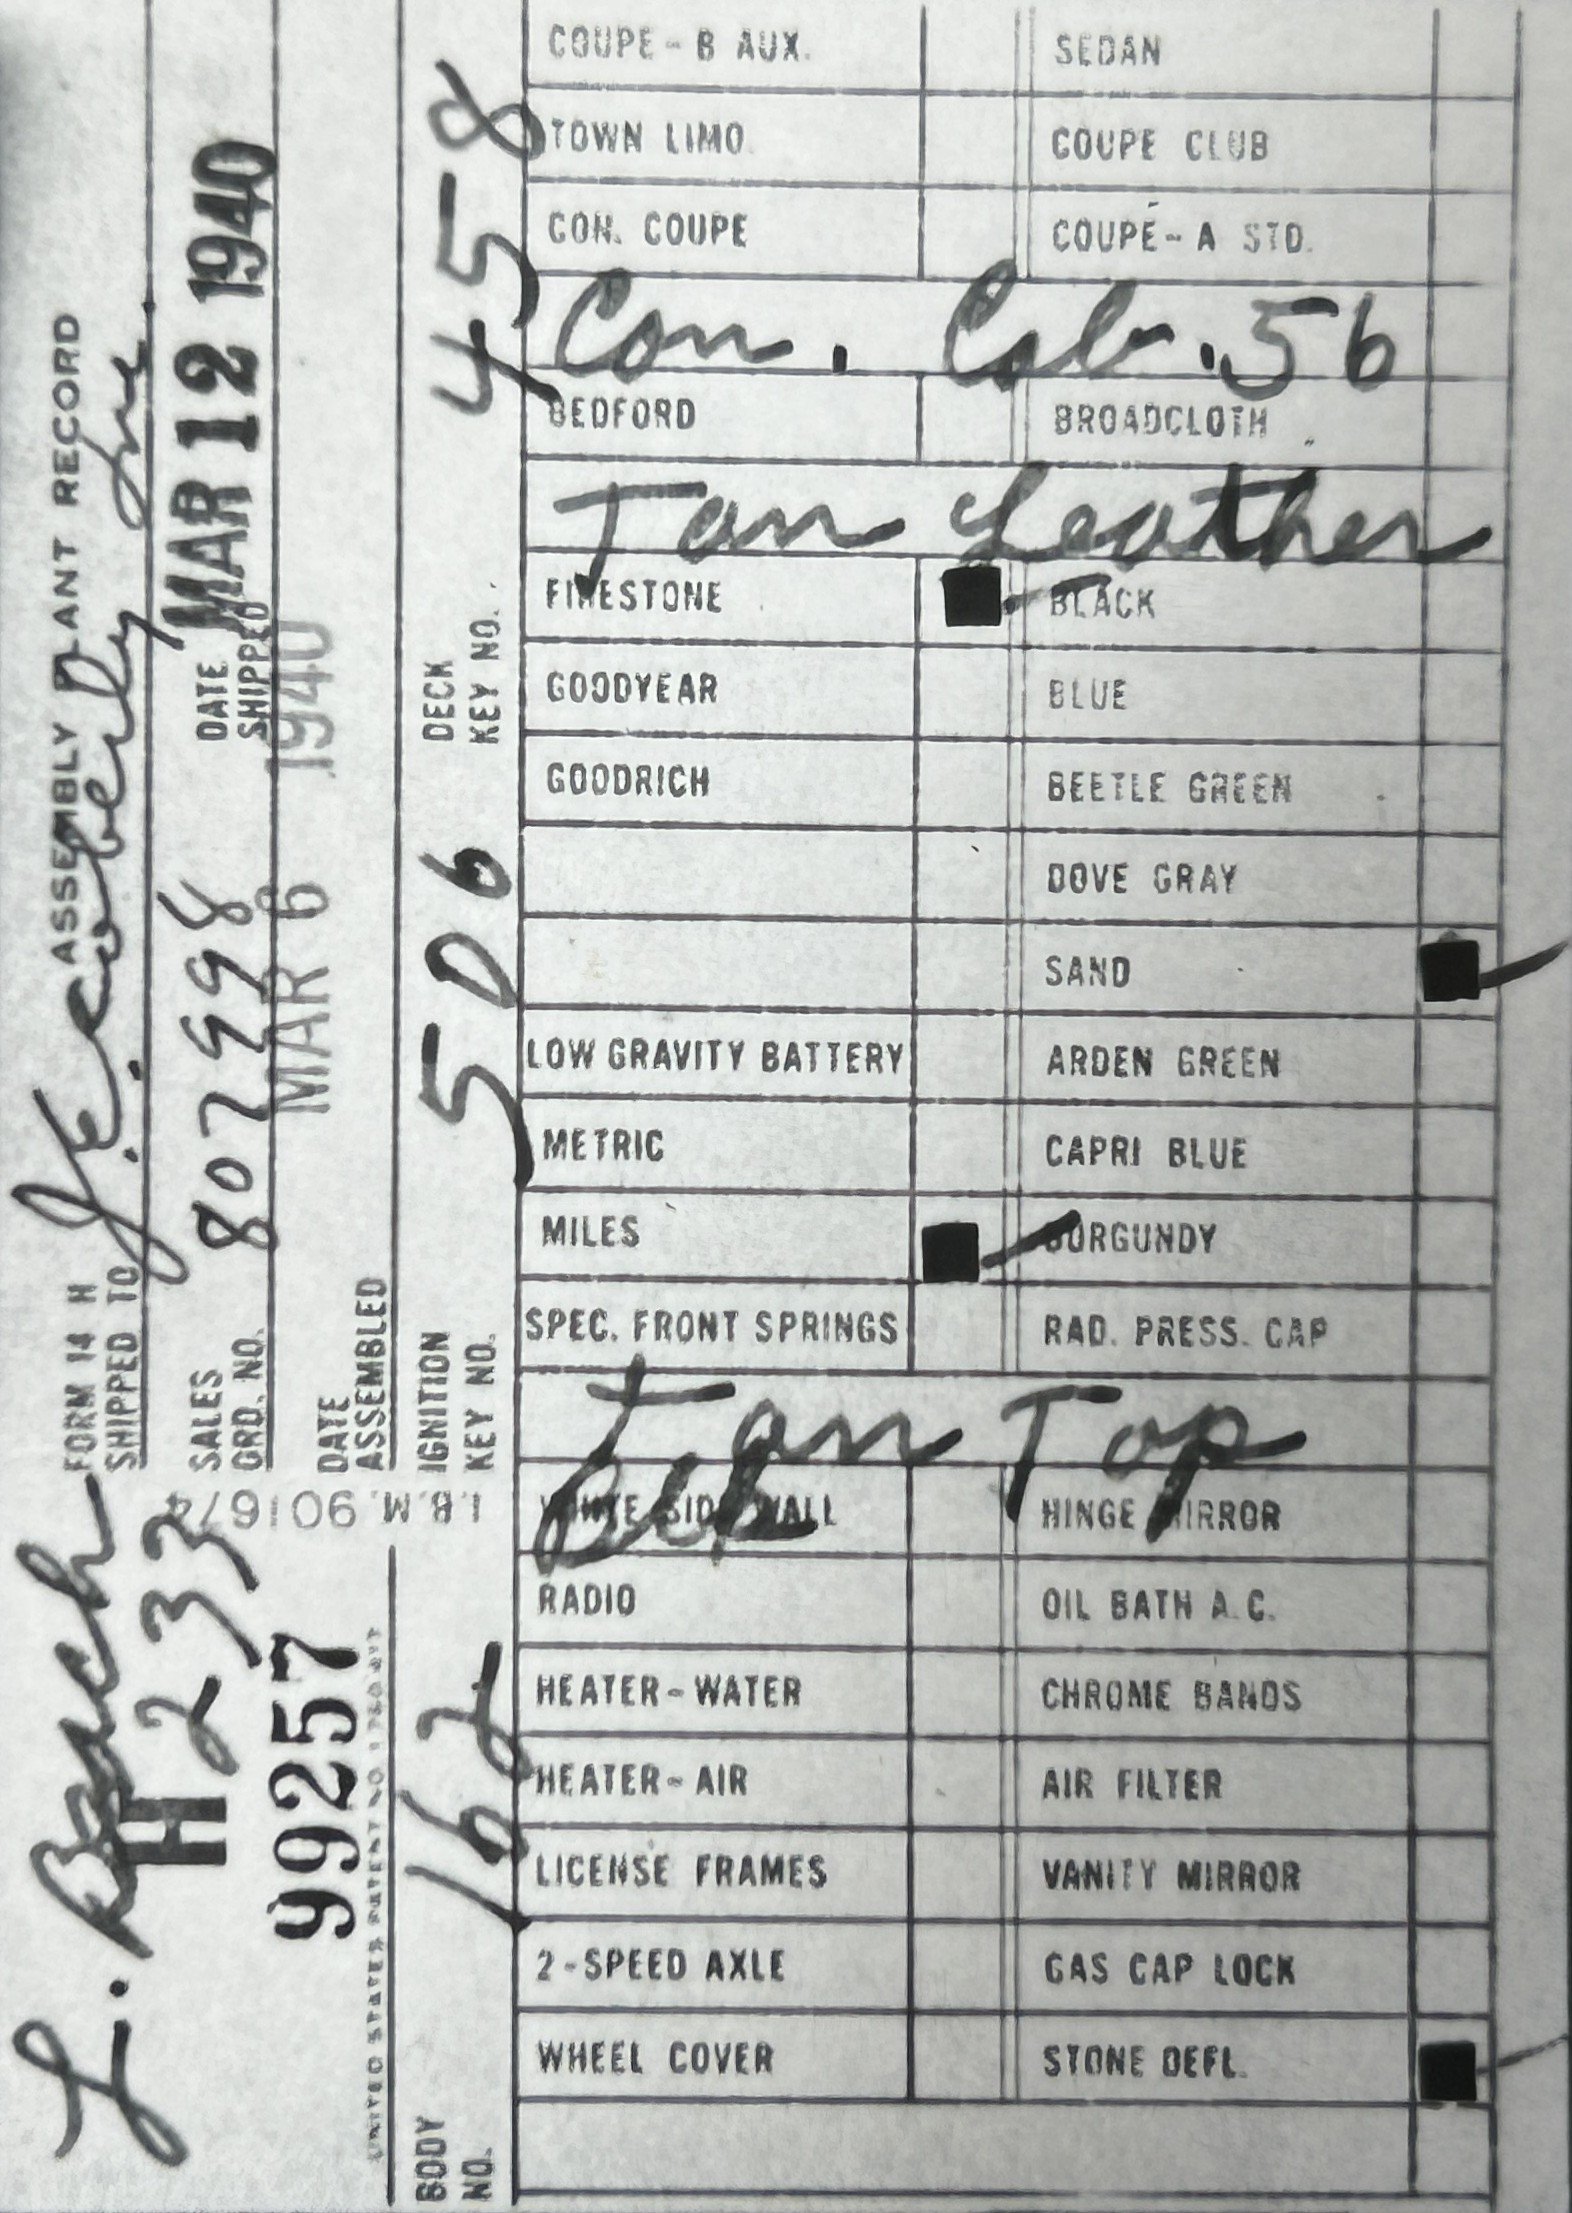 ASSEMBLY PLANT RECORD
FORM 14 H
SHIPPED TO J.E. Coberly Inc.
SALES ORD. NO. 807998
DATE SHIPPED MAR 12 1940
DATE ASSEMBLED MAR 6 1940
IGNITION KEY NO. 506
DECK KEY NO. 458
L. Bach
H 233
99257
I.B.M. 901674
UNITED STATES PATENT NO.
BODY NO. 162
COUPE-B AUX. SEDAN
TOWN LIMO. COUPE CLUB
CON. COUPE COUPE-A STD.
Con. Cab. 56
BEDFORD BROADCLOTH
Tan Leather
FIRESTONE BLACK
GOODYEAR BLUE
GOODRICH BEETLE GREEN
DOVE GRAY
SAND
LOW GRAVITY BATTERY ARDEN GREEN
METRIC CAPRI BLUE
MILES BURGUNDY
SPEC. FRONT SPRINGS RAD. PRESS. CAP
Tan Top
WHITE SIDE WALL HINGE MIRROR
RADIO OIL BATH A.C.
HEATER-WATER CHROME BANDS
HEATER-AIR AIR FILTER
LICENSE FRAMES VANITY MIRROR
2-SPEED AXLE GAS CAP LOCK
WHEEL COVER STONE DEFL.